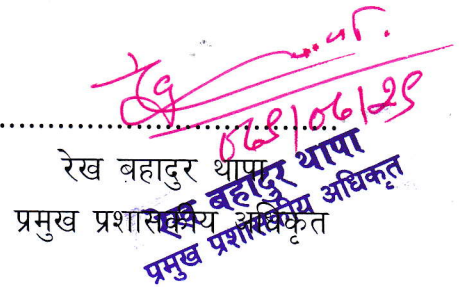 ०७९/०६/२९
रेख बहादुर थापा
प्रमुख प्रशासकीय अधिकृत
रेख बहादुर थापा
प्रमुख प्रशासकीय अधिकृत